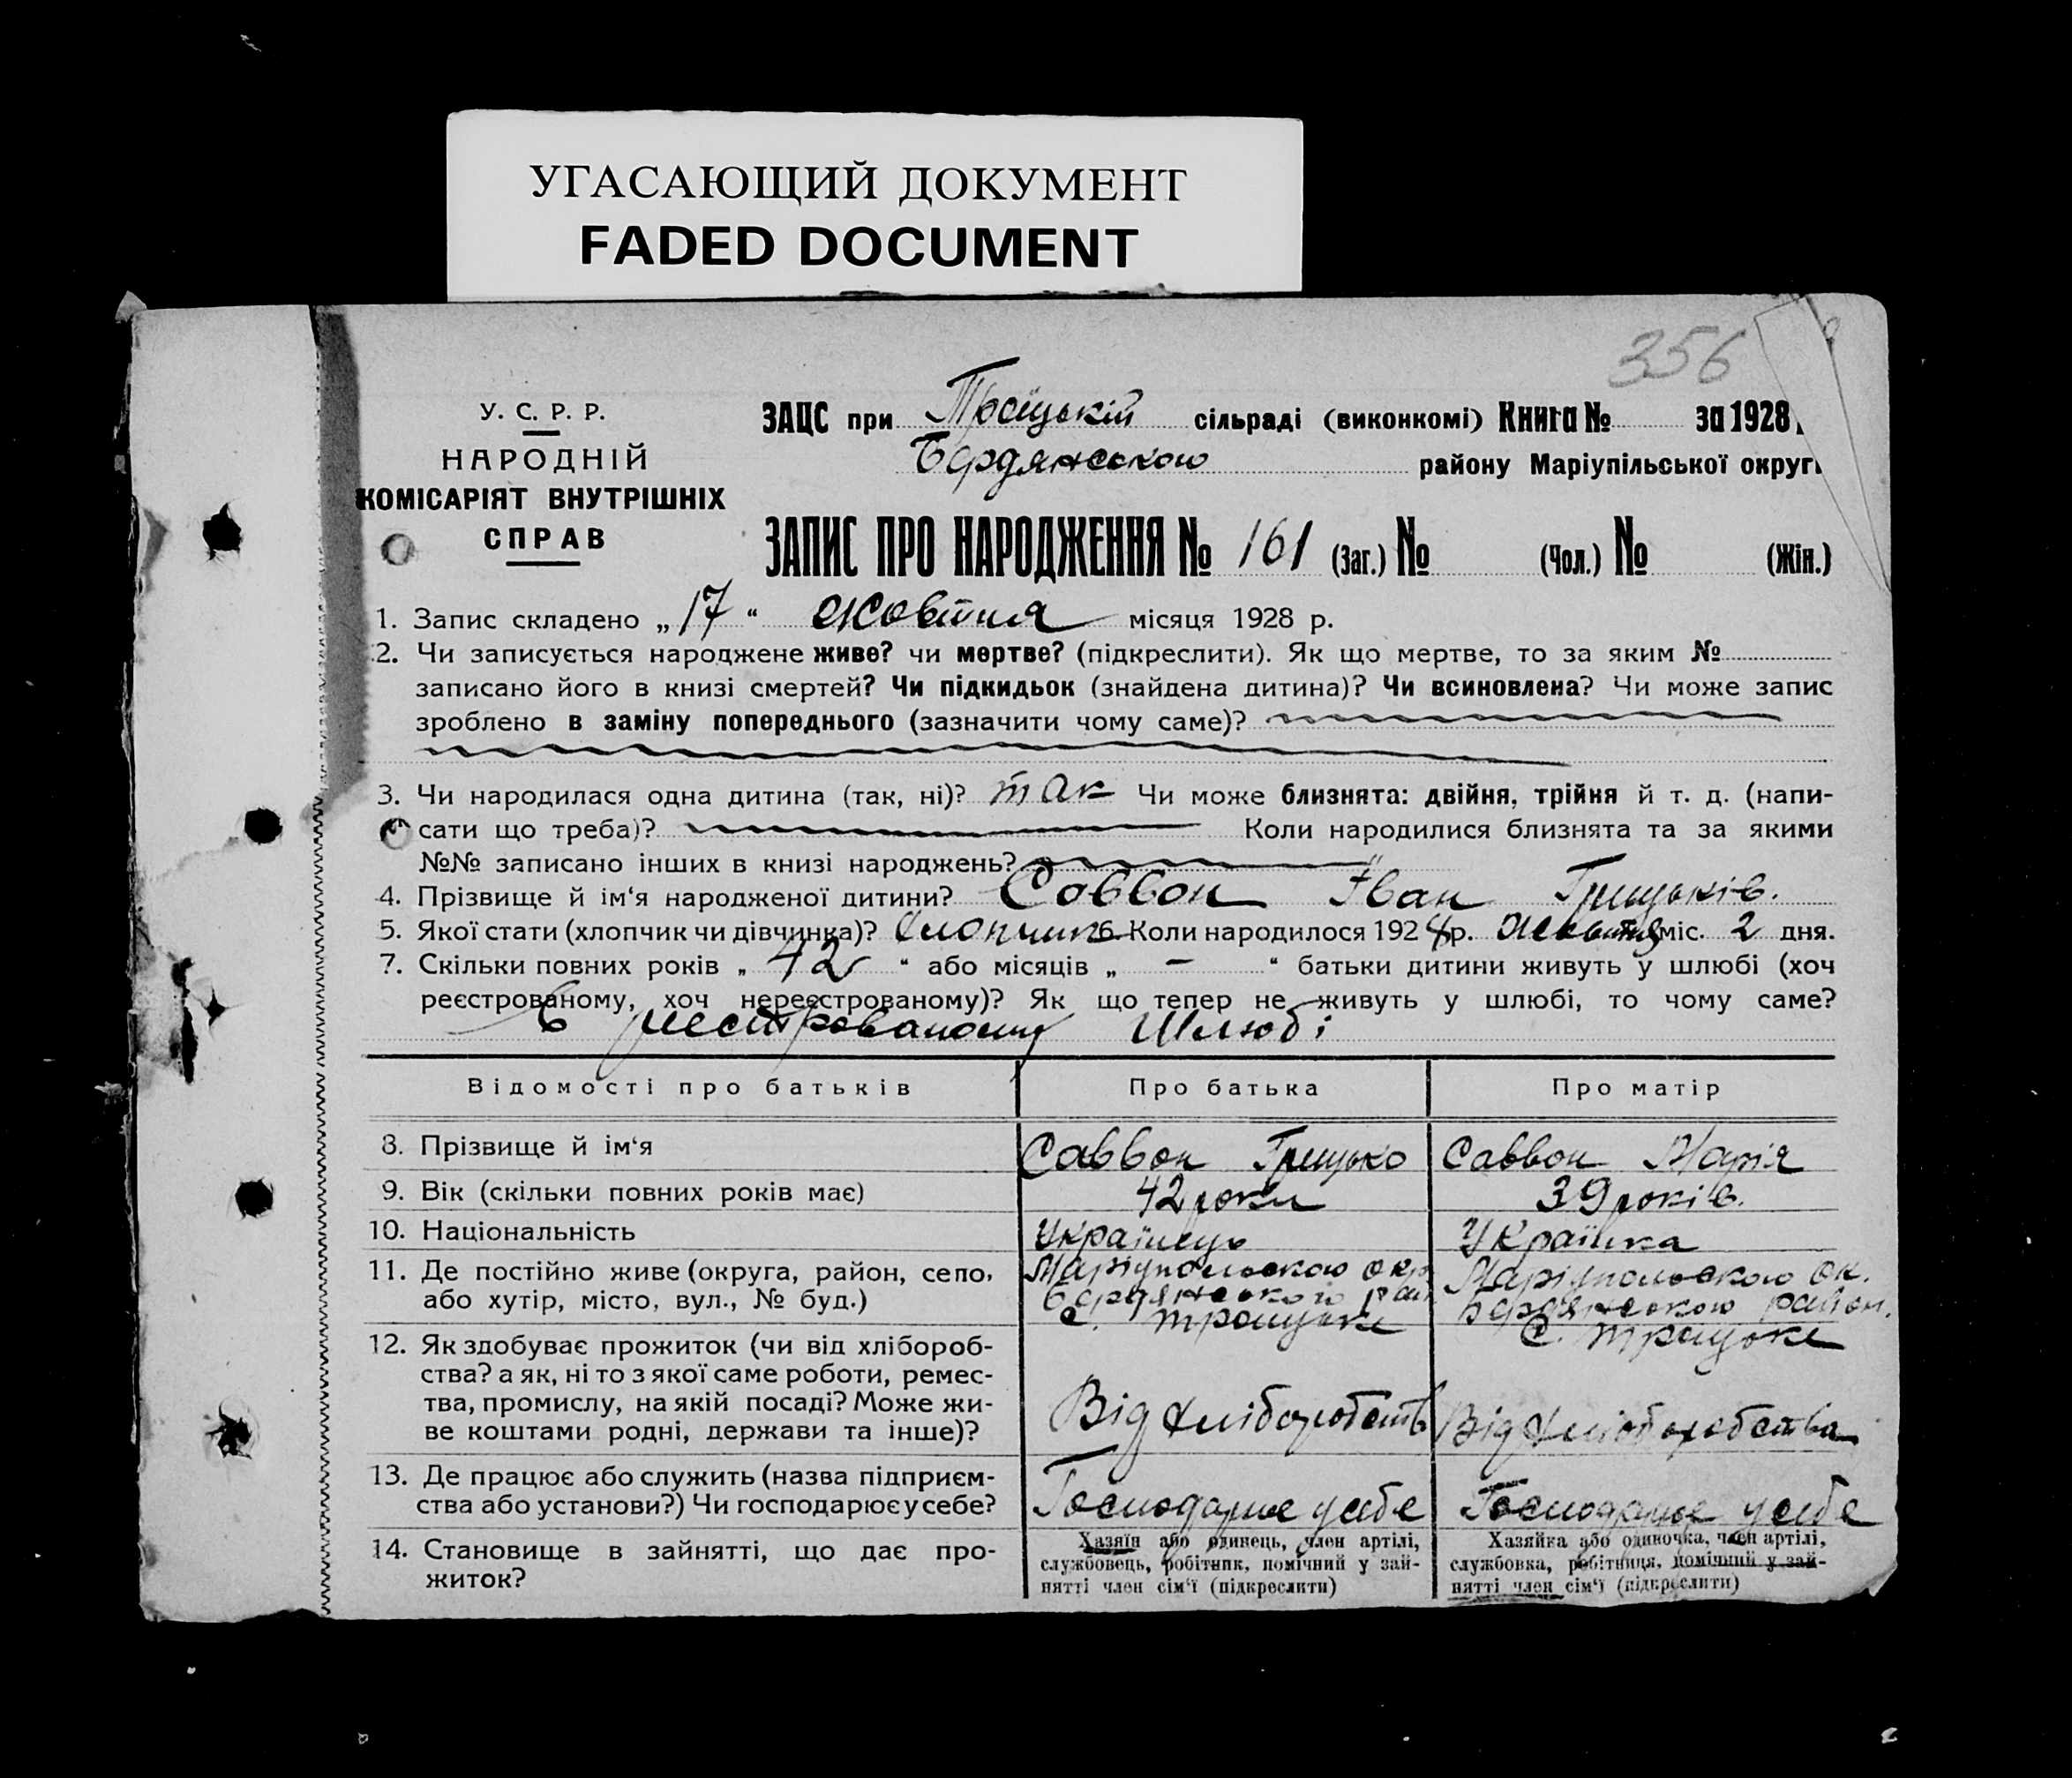 УГАСАЮЩИЙ ДОКУМЕНТ
FADED DOCUMENT
356
У. С. Р. Р.
НАРОДНІЙ
КОМІСАРІЯТ ВНУТРІШНІХ
СПРАВ
ЗАЦС при Троїцькій сільраді (виконкомі) Книга № за 1928
Бердянського району Маріупільської округи
ЗАПИС ПРО НАРОДЖЕННЯ № 161 (Заг.) № (Чол.) № (Жін.)
1. Запис складено „17“ жовтня місяця 1928 р.
2. Чи записується народжене живе? чи мертве? (підкреслити). Як що мертве, то за яким №
записано його в книзі смертей? Чи підкидьок (знайдена дитина)? Чи всиновлена? Чи може запис
зроблено в заміну попереднього (зазначити чому саме)?
3. Чи народилася одна дитина (так, ні)? так Чи може близнята: двійня, трійня й т. д. (напи-
сати що треба)? Коли народилися близнята та за якими
№№ записано інших в книзі народжень?
4. Прізвище й ім‘я народженої дитини? Саввон Іван Грицьків.
5. Якої стати (хлопчик чи дівчинка)? хлопчик 6. Коли народилося 1928 р. жовтня міс. 2 дня.
7. Скільки повних років „ 42 “ або місяців „ – “ батьки дитини живуть у шлюбі (хоч
реєстрованому, хоч нереєстрованому)? Як що тепер не живуть у шлюбі, то чому саме?
В реєстрованому шлюбі
Відомості про батьків Про батька Про матір
8. Прізвище й ім‘я Саввон Грицько Саввон Марія
9. Вік (скільки повних років має) 42 роки 39 років.
10. Національність Українець Українка
11. Де постійно живе (округа, район, село, Маріупольського окр. Маріупольського ок.
або хутір, місто, вул., № буд.) Бердянського рай. Бердянського район.
с. Троцьке с. Троцьке
12. Як здобуває прожиток (чи від хлібороб-
ства? а як, ні то з якої саме роботи, ремес-
тва, промислу, на якій посаді? Може жи- Від хліборобств Від хліборобства
ве коштами родні, держави та інше)?
13. Де працює або служить (назва підприєм-
ства або установи?) Чи господарює у себе? Господарює у себе Господарює у себе
14. Становище в зайнятті, що дає про-
житок?
Хазяїн або одинець, член артілі,
службовець, робітник, помічний у зай-
нятті член сім‘ї (підкреслити)
Хазяйка або одиночка, член артілі,
службовка, робітниця, помічний у зай-
нятті член сім‘ї (підкреслити)